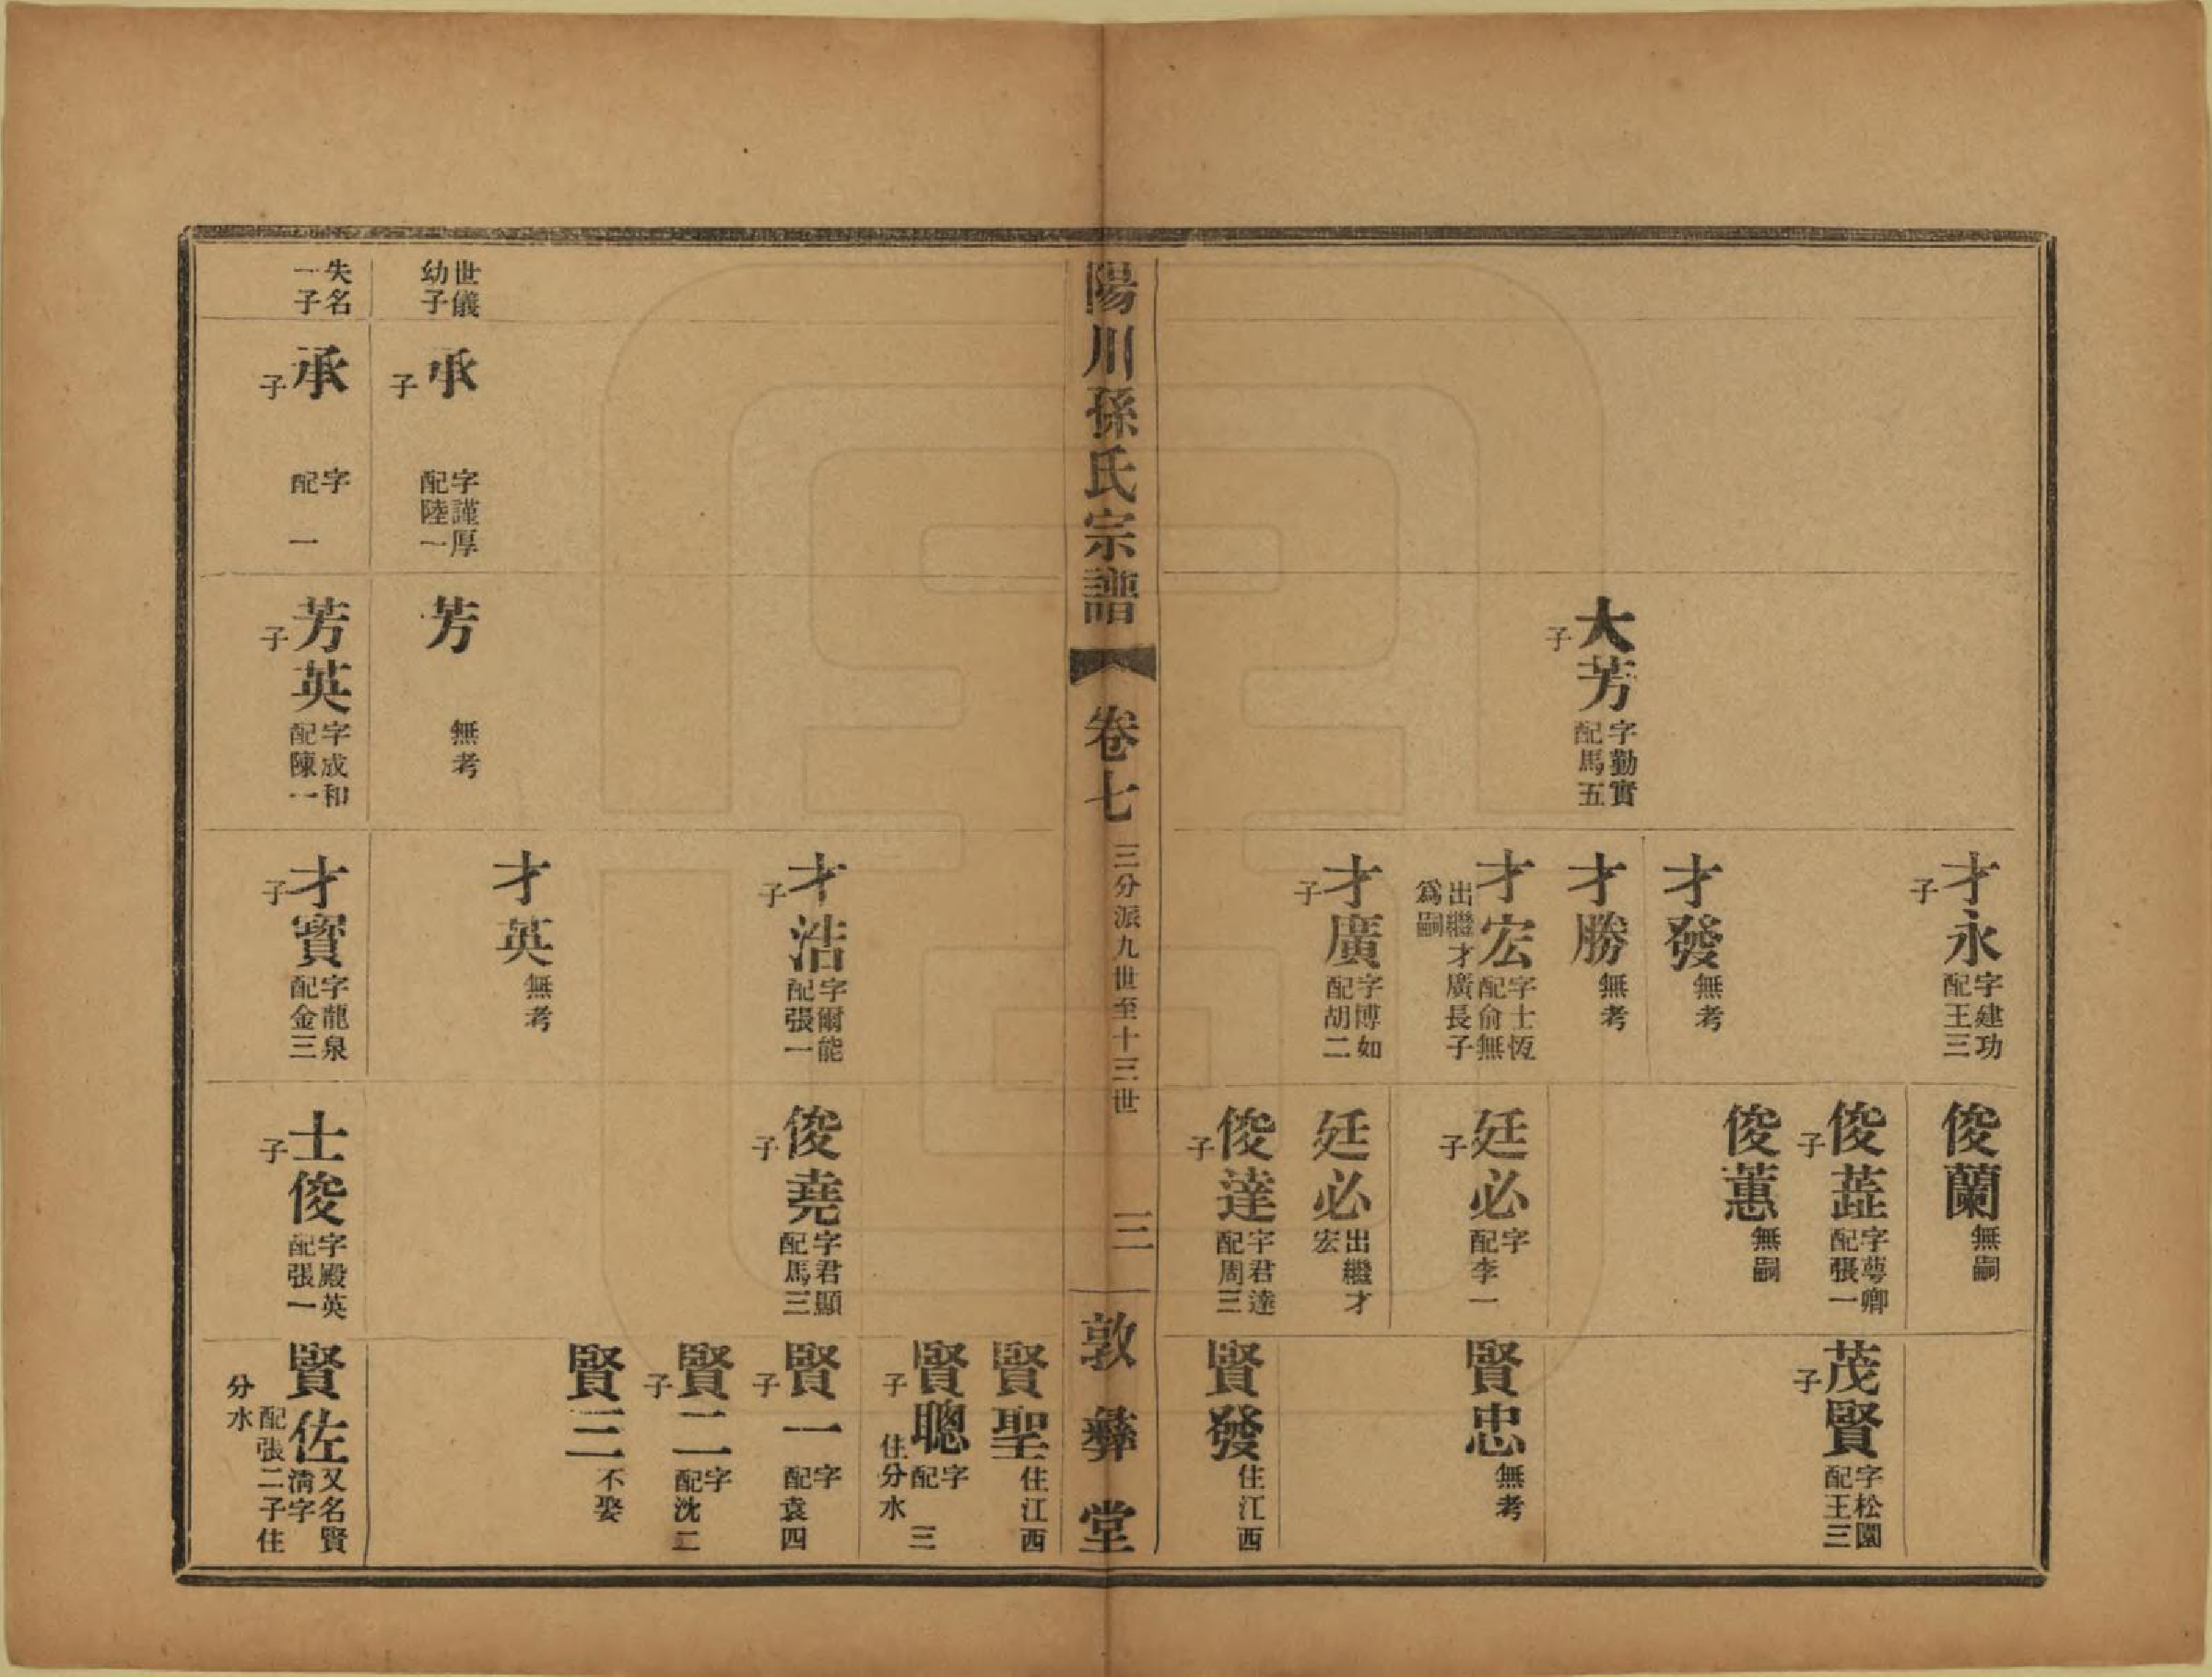 大芳
字勤實
配馬五
子
才永
字建功
配王三
子
才發
無考
才勝
無考
才宏
字士恆
配俞無
子
出繼才廣長子
爲嗣
才廣
字博如
配胡二
子
俊蘭
無嗣
俊蕋
字萼卿
配張一
子
俊蕙
無嗣
廷必
字
配李一
子
廷必
出繼才
宏
俊達
字君達
配周三
子
茂賢
字松園
配王三
子
賢忠
無考
賢發
住江西
陽川孫氏宗譜
卷七
三分派九世至十三世
三
敦彝堂
世儀
幼子
失名
一子
承
字謹厚
配陸一
子
承
字
配 一
子
芳
無考
芳英
字成和
配陳一
子
才浩
字爾能
配張一
子
才英
無考
才寳
字龍泉
配金三
子
俊堯
字君顯
配馬三
子
士俊
字殿英
配張一
子
賢聖
住江西
賢聰
字
配 三
子
住分水
賢一
字
配袁四
子
賢二
字
配沈二
子
賢三
不娶
賢佐
又名賢
淸字
配張二子住
分水